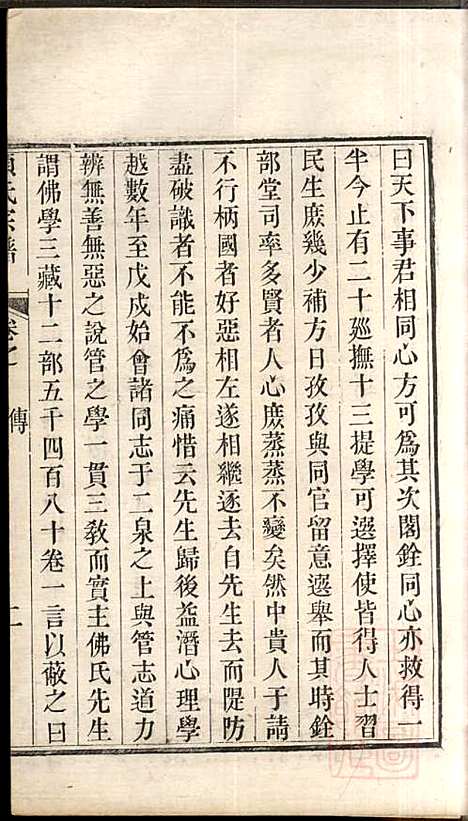 曰天下事君相同心方可爲其次閣銓同心亦救得一
半今止有二十廵撫十三提學可選擇使皆得人士習
民生庶幾少補方日孜孜與同官留意選舉而其時銓
部堂司率多賢者人心庶蒸蒸不變矣然中貴人于請
不行柄國者好惡相左遂相繼逐去自先生去而隄防
盡破識者不能不爲之痛惜云先生歸後益潛心理學
越數年至戊戍始會諸同志于二泉之上與管志道力
辨無善無惡之說管之學一貫三教而實主佛氏先生
謂佛學三藏十二部五千四百八十卷一言以蔽之曰
氏宗譜
卷之
傳
二